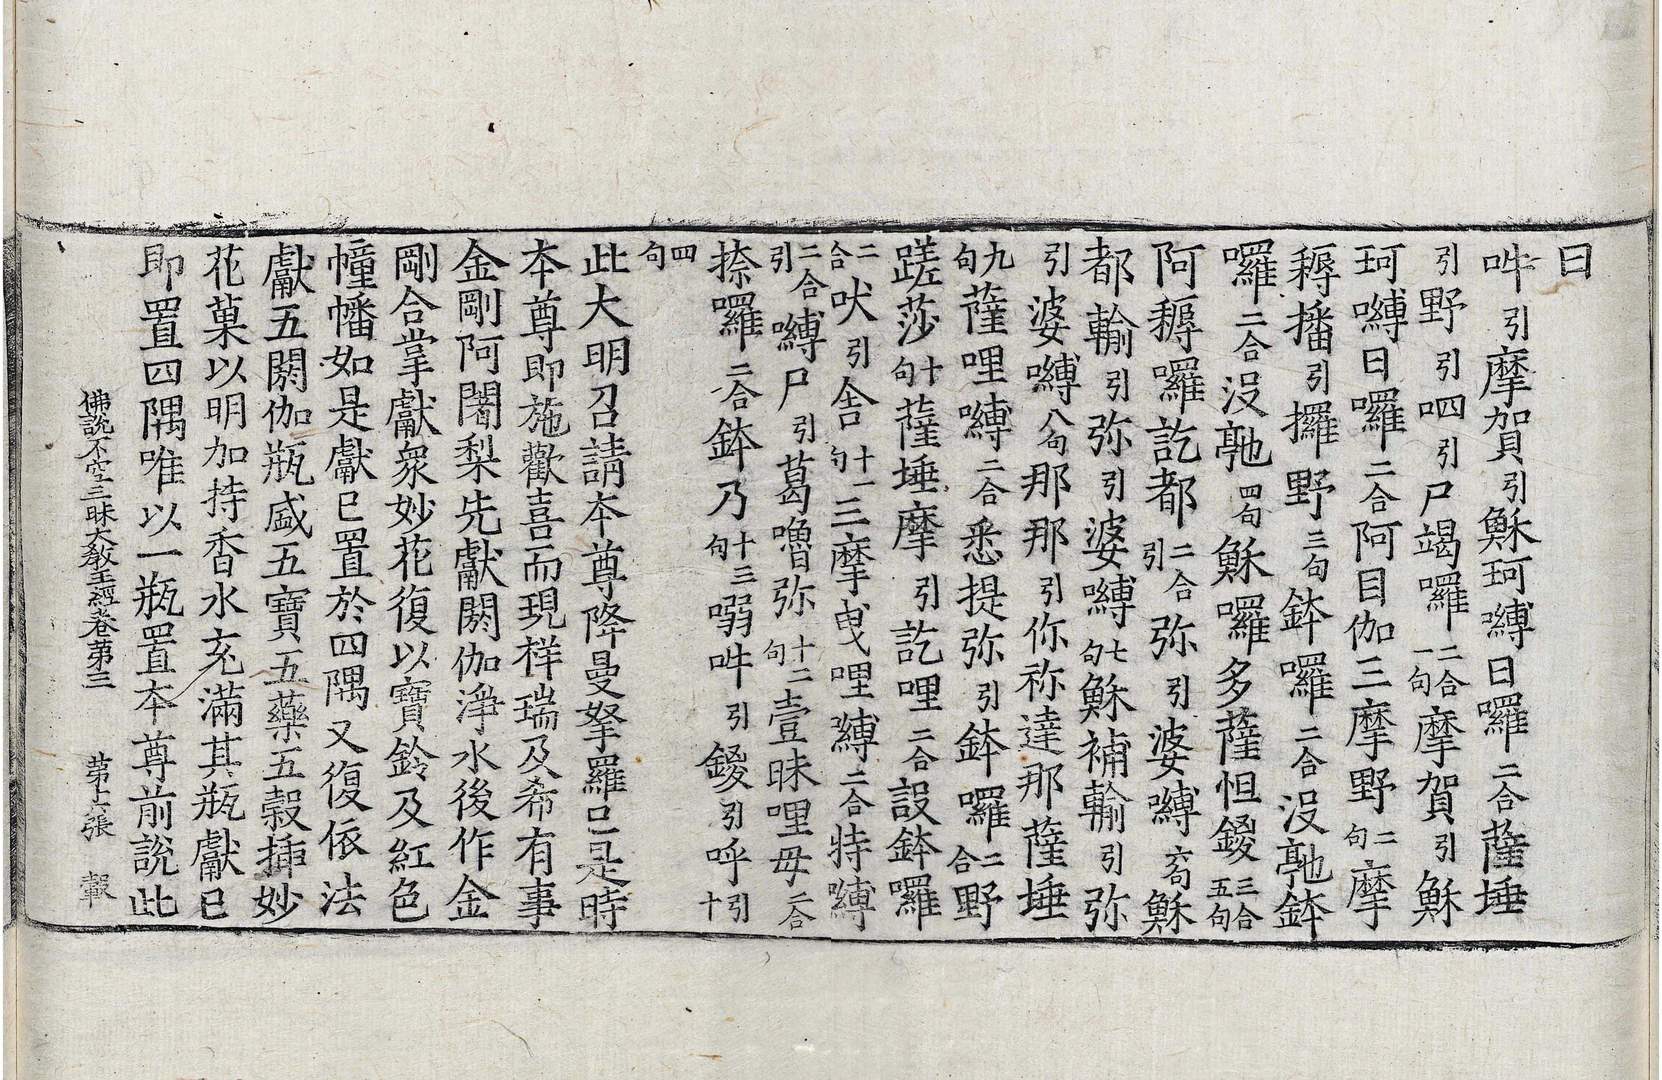 曰
吽引摩賀引穌珂嚩日囉二合薩埵
引野引呬引尸竭囉二合一句摩賀引穌
珂嚩日囉二合阿目伽三摩野二句摩
耨播引攞野三句鉢囉二合沒馳鉢
囉二合沒馳四句穌囉多薩怛鍐三合五句
阿耨囉訖都二合引弥引婆嚩六句穌
都輸引弥引婆嚩七句穌補輸引弥
引婆嚩八句那那引你祢達那薩埵
九句薩哩嚩二合悉提弥引鉢囉二合野
蹉莎十句薩埵摩引訖哩二合設鉢囉
二合吠引舍十一句三摩曳哩嚩二合特嚩
二合引嚩尸引葛嚕弥十二句壹昧哩毋二合
捺囉二合鉢乃十三句嗗吽引鍐引呼引十
四句
此大明召請本尊降曼拏羅已是時
本尊即施歡喜而現样瑞及希有事
金剛阿闍梨先獻閼伽淨水後作金
剛合掌獻衆妙花復以寶鈴及紅色
幢幡如是獻已置於四隅又復依法
獻五閼伽瓶盛五寶五藥五穀揷妙
花菓以明加持香水充滿其瓶獻已
即置四隅唯以一瓶置本尊前說此
佛說不空三昧大教王經卷第三 第十六張 轂